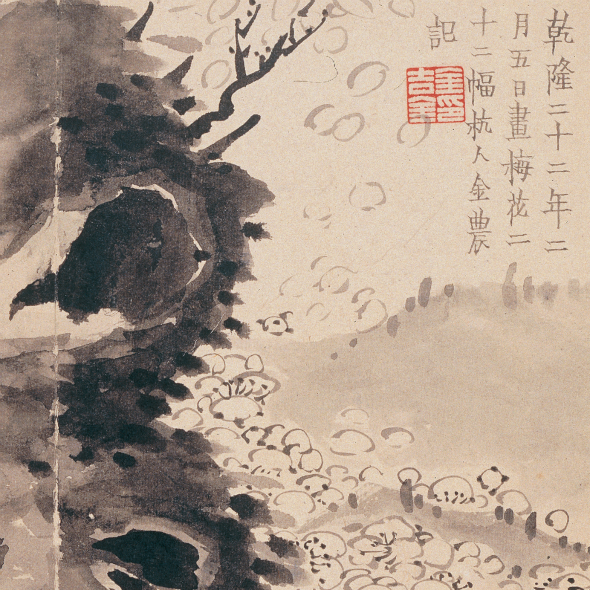 乾隆二十二年二
月五日畫梅花二
十二幅杭人金農
記
金吉金印